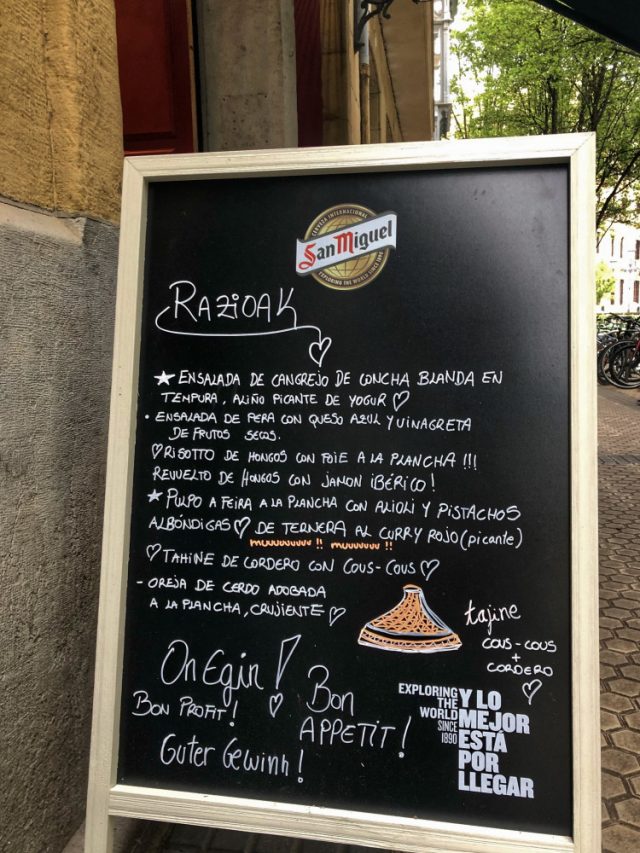 CERVEZA INTERNACIONAL
San Miguel
EXPLORING THE WORLD SINCE 1890
RAZIOAK
★ ENSALADA DE CANGREJO DE CONCHA BLANDA EN
TEMPURA, ALIÑO PICANTE DE YOGUR ♡
• ENSALADA DE PERA CON QUESO AZUL Y VINAGRETA
DE FRUTOS SECOS.
♡ RISOTTO DE HONGOS CON FOIE A LA PLANCHA !!!
REVUELTO DE HONGOS CON JAMON IBÉRICO!
★ PULPO A FEIRA A LA PLANCHA CON ALIOLI Y PISTACHOS
ALBÓNDIGAS ♡ DE TERNERA AL CURRY ROJO (picante)
muuuuuuuu !! muuuuuu !!
♡ TAHINE DE CORDERO CON COUS-COUS ♡
- OREJA DE CERDO ADOBADA
A LA PLANCHA, CRUJIENTE ♡
tajine
COUS-COUS
+
CORDERO
♡
On Egin!
BON PROFIT! ♡
BON
APPETIT!
Guter Gewinn!
EXPLORING
THE
WORLD
SINCE
1890
Y LO
MEJOR
ESTÁ
POR
LLEGAR